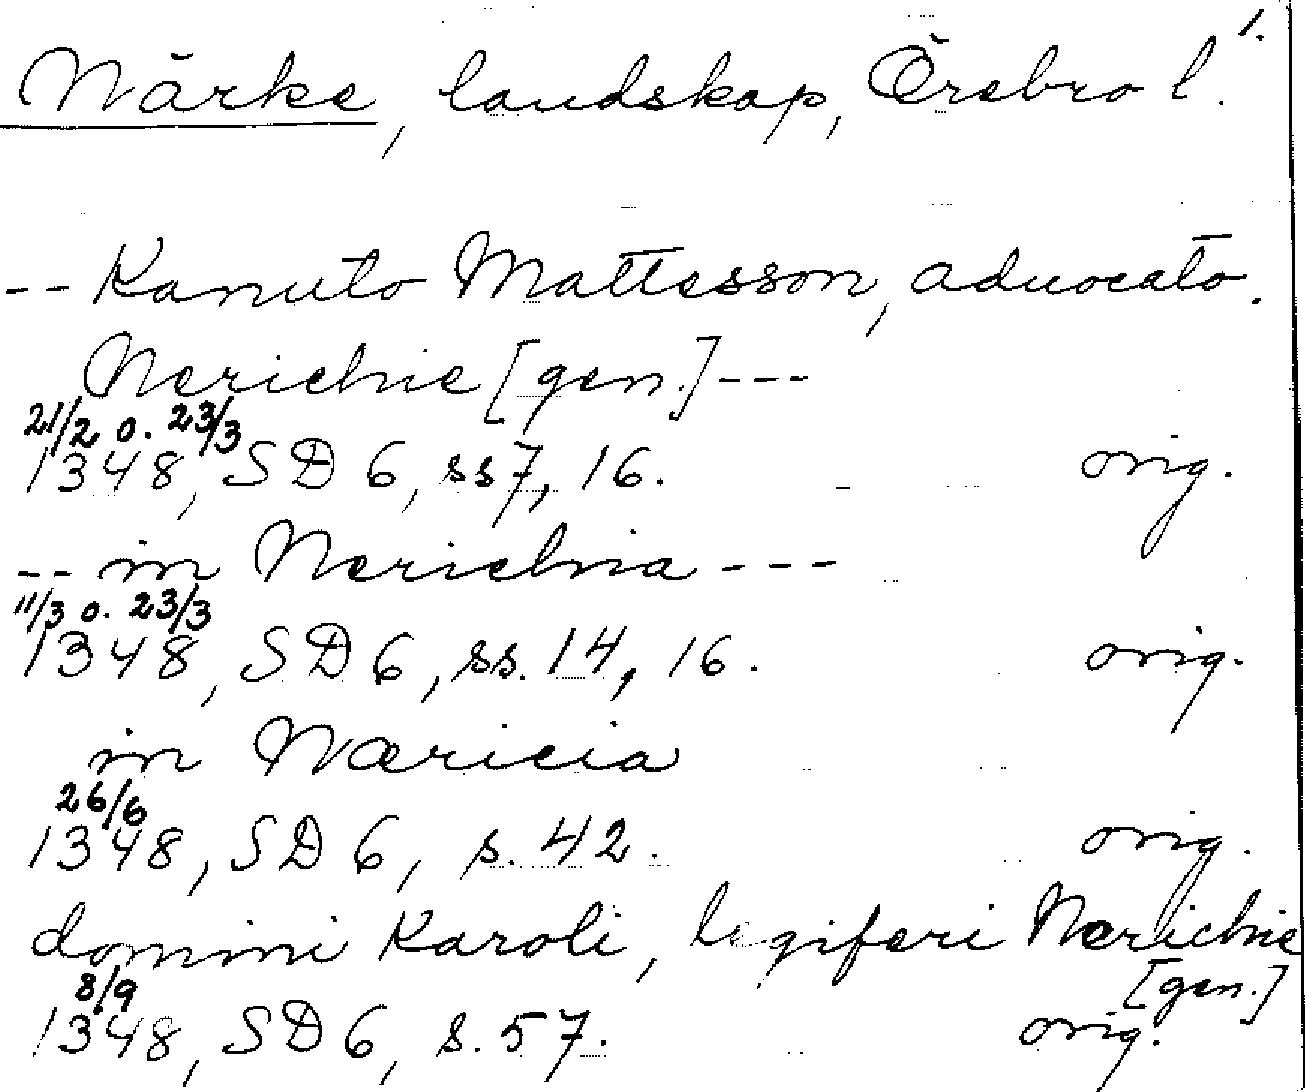 1.
Närke, landskap, Örebro l.
-- Kanuto Mattesson, aduocato.
Nerichie [gen.] ---
21/2 o. 23/3
1348, SD 6, ss 7, 16. orig.
-- in Nerichia ---
11/3 o. 23/3
1348, SD 6, ss. 14, 16. orig.
in Næricia
26/6
1348, SD 6, s. 42. orig.
domini Karoli, legiferi Nærichie
[gen.]
8/9
1348, SD 6, s. 57. orig.